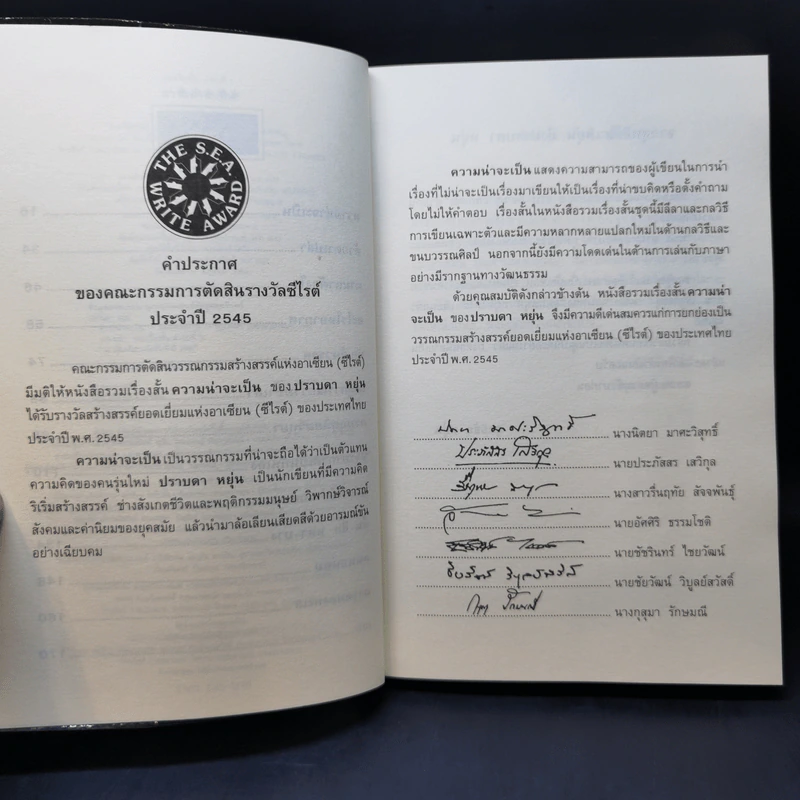 THE S.E.A. WRITE AWARD
คำประกาศ
ของคณะกรรมการตัดสินรางวัลซีไรต์
ประจำปี 2545
คณะกรรมการตัดสินวรรณกรรมสร้างสรรค์แห่งอาเซียน (ซีไรต์)
มีมติให้หนังสือรวมเรื่องสั้น ความน่าจะเป็น ของ ปราบดา หยุ่น
ได้รับรางวัลสร้างสรรค์ยอดเยี่ยมแห่งอาเซียน (ซีไรต์) ของประเทศไทย
ประจำปี พ.ศ. 2545
ความน่าจะเป็น เป็นวรรณกรรมที่น่าจะถือได้ว่าเป็นตัวแทน
ความคิดของคนรุ่นใหม่ ปราบดา หยุ่น เป็นนักเขียนที่มีความคิด
ริเริ่มสร้างสรรค์ ช่างสังเกตชีวิตและพฤติกรรมมนุษย์ วิพากษ์วิจารณ์
สังคมและค่านิยมของยุคสมัย แล้วนำมาล้อเลียนเสียดสีด้วยอารมณ์ขัน
อย่างเฉียบคม
ความน่าจะเป็น แสดงความสามารถของผู้เขียนในการนำ
เรื่องที่ไม่น่าจะเป็นเรื่องมาเขียนให้เป็นเรื่องที่น่าขบคิดหรือตั้งคำถาม
โดยไม่ให้คำตอบ เรื่องสั้นในหนังสือรวมเรื่องสั้นชุดนี้มีลีลาและกลวิธี
การเขียนเฉพาะตัวและมีความหลากหลายแปลกใหม่ในด้านกลวิธีและ
ขนบวรรณศิลป์ นอกจากนี้ยังมีความโดดเด่นในด้านการเล่นกับภาษา
อย่างมีรากฐานทางวัฒนธรรม
ด้วยคุณสมบัติดังกล่าวข้างต้น หนังสือรวมเรื่องสั้น ความน่า
จะเป็น ของ ปราบดา หยุ่น จึงมีความดีเด่นสมควรแก่การยกย่องเป็น
วรรณกรรมสร้างสรรค์ยอดเยี่ยมแห่งอาเซียน (ซีไรต์) ของประเทศไทย
ประจำปี พ.ศ. 2545
นางนิตยา มาศะวิสุทธิ์
ประภัสสร เสวิกุล นายประภัสสร เสวิกุล
นางสาวรื่นฤทัย สัจจพันธุ์
นายอัศศิริ ธรรมโชติ
นายชัชรินทร์ ไชยวัฒน์
นายชัยวัฒน์ วิบูลย์สวัสดิ์
นางกุสุมา รักษมณี